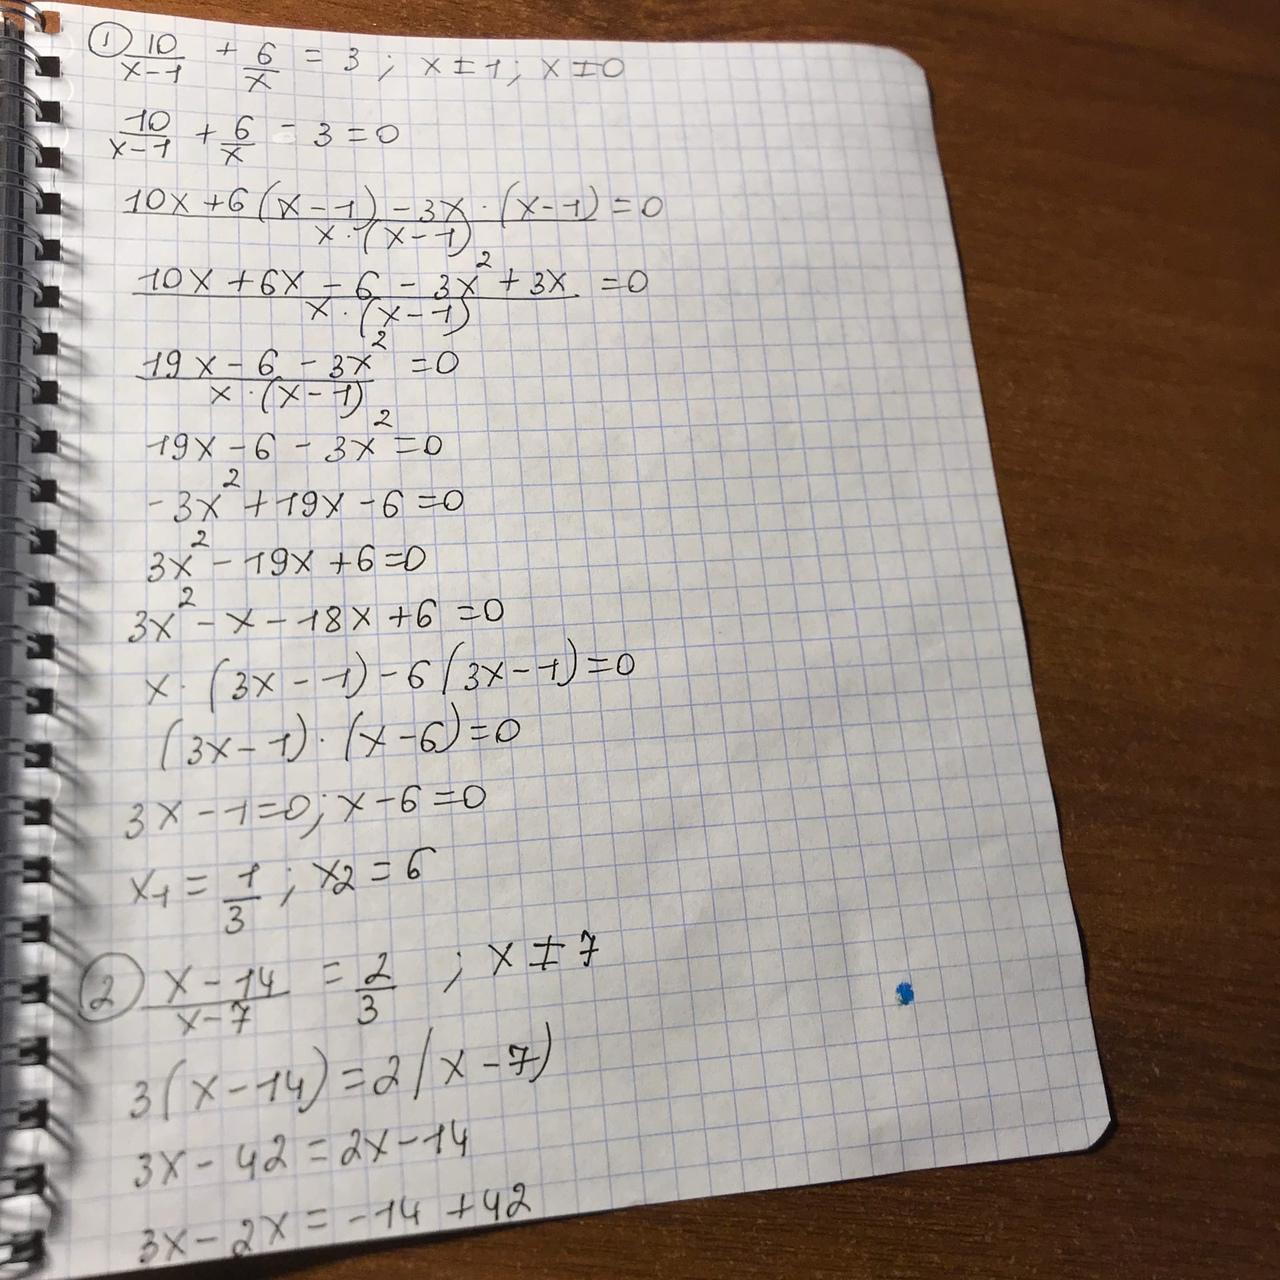 ① 10/(x-1) + 6/x = 3 ; x ≠ 1 ; x ≠ 0
10/(x-1) + 6/x - 3 = 0
(10x + 6(x-1) - 3x · (x-1))/(x · (x-1)) = 0
(10x + 6x - 6 - 3x² + 3x)/(x · (x-1)) = 0
(19x - 6 - 3x²)/(x · (x-1)) = 0
19x - 6 - 3x² = 0
-3x² + 19x - 6 = 0
3x² - 19x + 6 = 0
3x² - x - 18x + 6 = 0
x · (3x - 1) - 6(3x - 1) = 0
(3x - 1) · (x - 6) = 0
3x - 1 = 0; x - 6 = 0
x₁ = 1/3 ; x2 = 6
② (x - 14)/(x - 7) = 2/3 ; x ≠ 7
3(x - 14) = 2(x - 7)
3x - 42 = 2x - 14
3x - 2x = -14 + 42